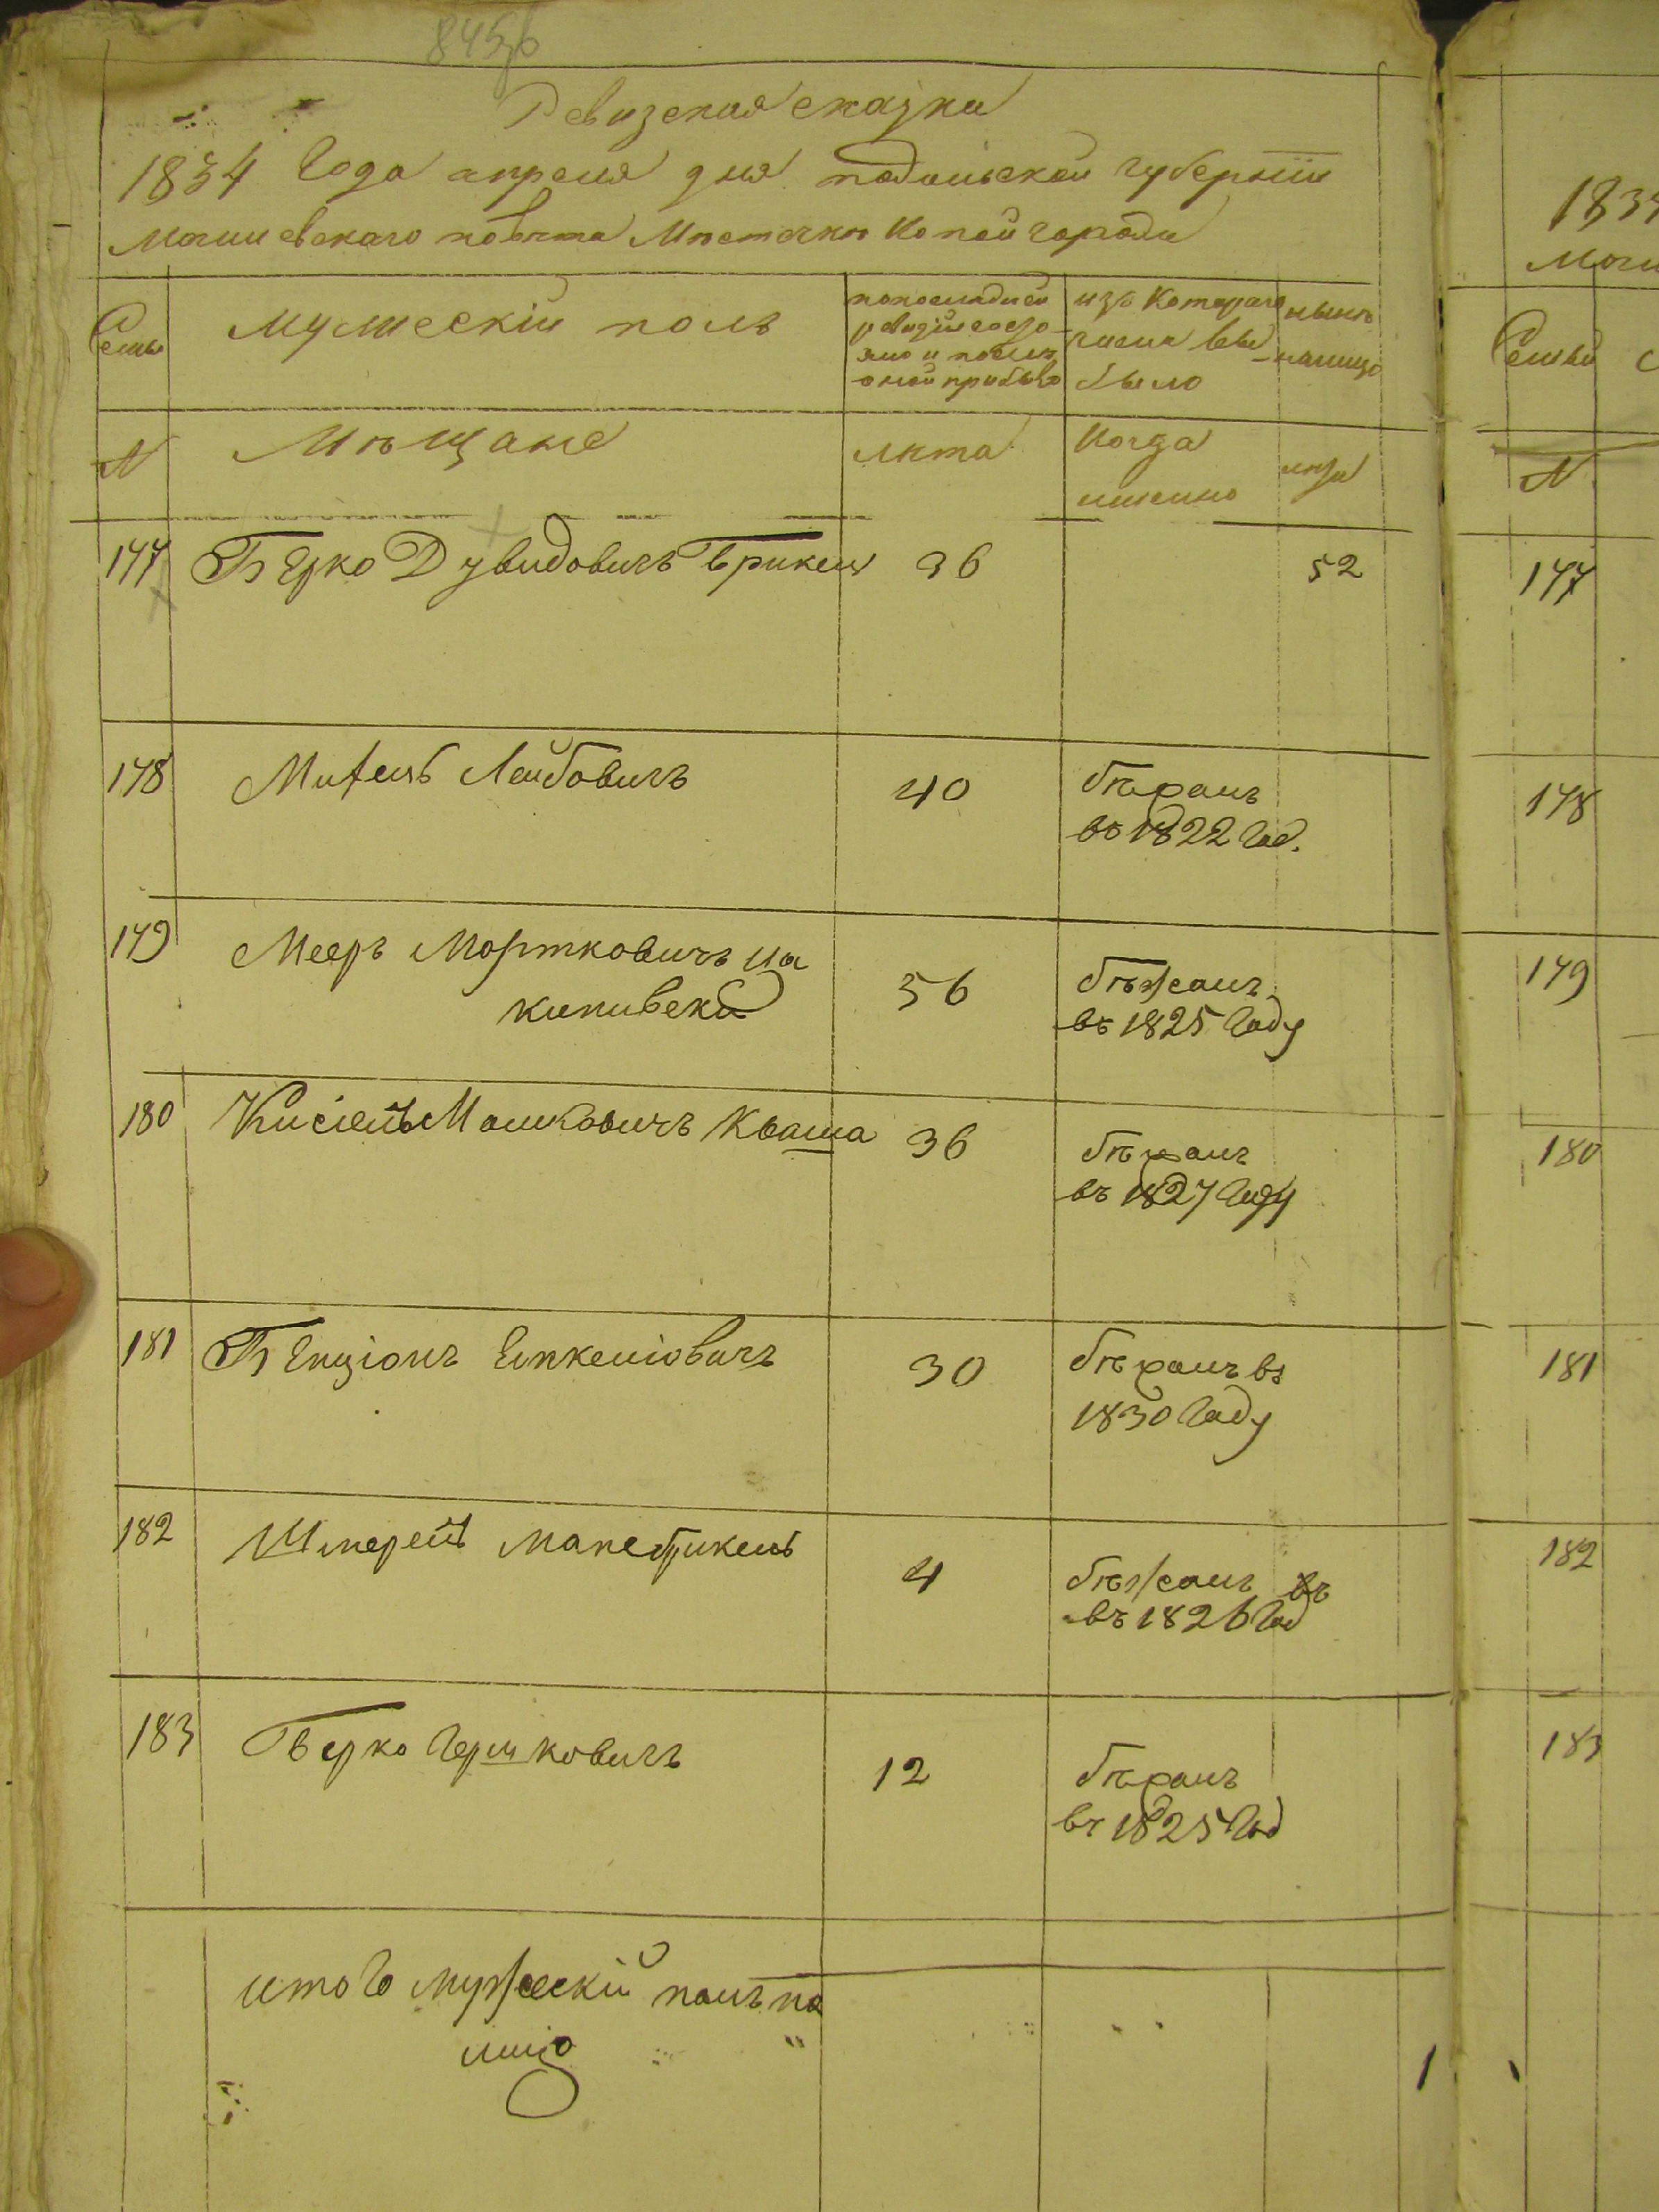 Ревизская сказка
1834 года апреля дня подольской губернии
Могилевского повѣта Мѣстечкѣ Копайгорода
Семьи
мужескій полъ
по последней
ревизіи состо
яло и послѣ
оной прибыло
изъ Котораго
числа вы
было
нынѣ
налицо
N
Мѣщане
лѣта
Когда
именно
лѣта
177 Берко Дувидовичъ Брикель 36 52
178 Мифель Лейбовичъ 40 бѣжалъ
въ 1822 год.
179 Мееръ Мортковичъ
56 бѣжалъ
въ 1825 году
180 Кисіель Мошковичъ Кваша 36 бѣжалъ
въ 1827 году
181 Бенціонъ 30 бѣжалъ въ
1830 году
182 Шмерель 4 бѣжалъ въ
въ 1826 год
183 Берко Гершковичъ 12 бѣжалъ
въ 1825 год
итого мужескій полъ на
лицо 1
183
Могил
Семьи
N
177
178
179
180
181
182
183